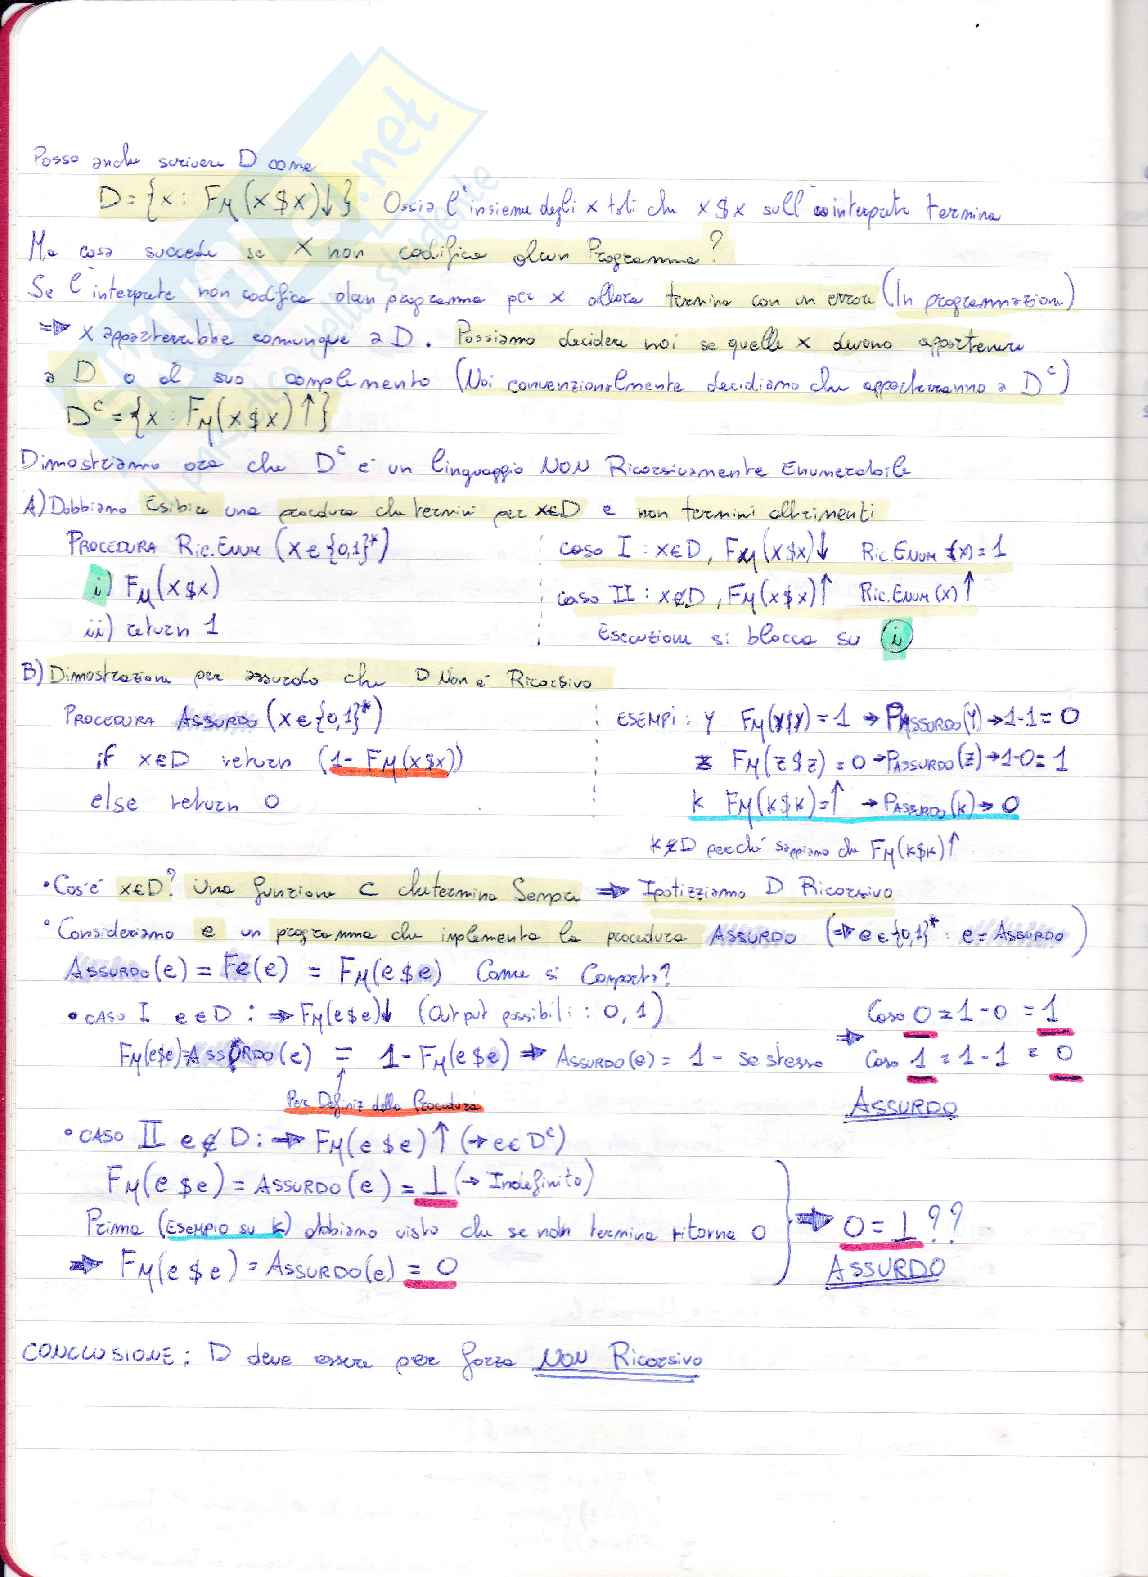 Posso anche scrivere D come
D = {x : F_M(x$x)↓} Ossia l'insieme degli x tali che x$x sull'interprete termina
Ma cosa succede se X non codifica alcun Programma?
Se l'interprete non codifica alcun programma per x allora termina con un errore (In programmazione)
⇒ x apparterrebbe comunque a D. Possiamo decidere noi se quelle x devono appartenere
a D o al suo complemento (Noi convenzionalmente decidiamo che apparterranno a D^c)
D^c = {x : F_M(x$x)↑}
Dimostriamo ora che D^c è un linguaggio NON Ricorsivamente Enumerabile
A) Dobbiamo Esibire una procedura che termini per x∈D e non termini altrimenti
PROCEDURA RIC.ENUM (x∈{0,1}*)
i) F_M(x$x)
ii) return 1
caso I : x∈D, F_M(x$x)↓ RIC.ENUM(x)=1
caso II : x∉D, F_M(x$x)↑ RIC.ENUM(x)↑
Esecuzione si blocca su i
B) Dimostrazione per assurdo che D Non è Ricorsivo
PROCEDURA ASSURDO (x∈{0,1}*)
if x∈D return (1 - F_M(x$x))
else return 0
ESEMPI : y F_M(y$y) = 1 → P_ASSURDO(y) → 1-1 = 0
z F_M(z$z) = 0 → P_ASSURDO(z) → 1-0 = 1
k F_M(k$k) = ↑ → P_ASSURDO(k) → 0
k∉D perché sappiamo che F_M(k$k)↑
• Cos'è x∈D? Una funzione C che termina Sempre ⇒ Ipotizziamo D Ricorsivo
• Consideriamo e un programma che implementa la procedura ASSURDO (⇒ e∈{0,1}* : e = ASSURDO)
ASSURDO(e) = Fe(e) = F_M(e$e) Come si Comporta?
• CASO I e∈D : ⇒ F_M(e$e)↓ (Output possibili : 0, 1)
F_M(e$e)=ASSURDO(e) = 1 - F_M(e$e) ⇒ ASSURDO(e) = 1 - se stesso
Per Definiz della Procedura
⇒ Caso 0 = 1 - 0 = 1
Caso 1 = 1 - 1 = 0
ASSURDO
• CASO II e∉D : ⇒ F_M(e$e)↑ (→ e∈D^c)
F_M(e$e) = ASSURDO(e) = ⊥ (→ Indefinito)
Prima (ESEMPIO SU K) abbiamo visto che se non termina ritorna 0
⇒ F_M(e$e) = ASSURDO(e) = 0
⇒ 0 = ⊥ ??
ASSURDO
CONCLUSIONE : D deve essere per forza NON Ricorsivo